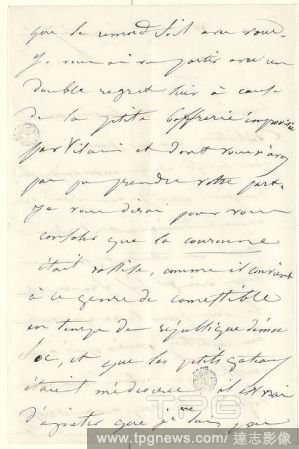 que le remord soit avec vous.
Je vous ai vu partir avec un
double regret hier à cause
de la petite goffrerie improvisée
par Vilain et dont vous n'avez
pas pu prendre votre part.
Je vous dirai pour vous
consoler que la couronne
était rassise, comme il convient
à ce genre de comestible
en temps de république démoc
soc, et que les petits gateaux
étaient médiocres il est vrai
d'ajouter que je
TPG
www.tpgnews.com/達志影像